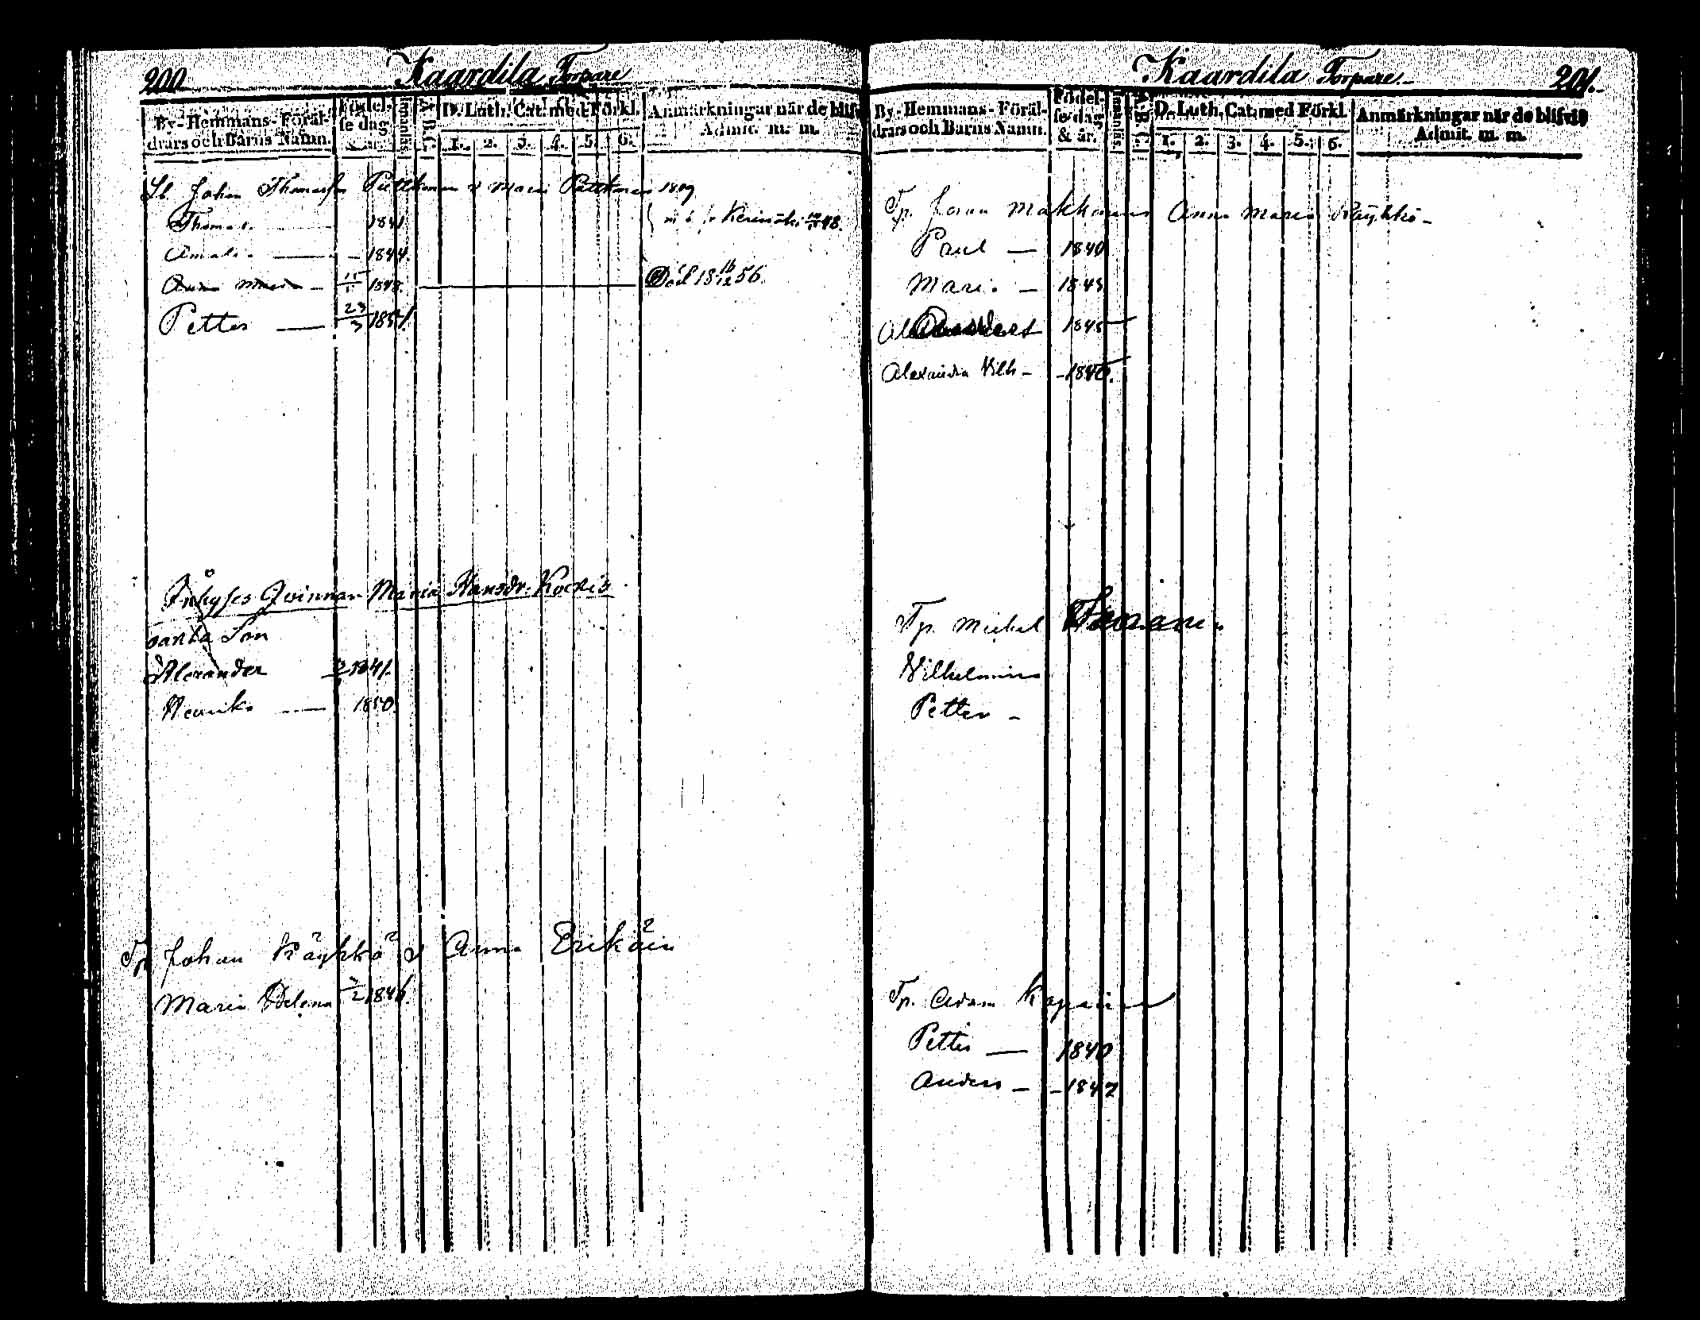 200. Kaardila Torpare
By-Hemmans-Föräl-drars och Barns Namn. Födel-se dag & år. Innanläs. A.B.C. D. Luth. Cat. med Förkl. 1. 2. 3. 4. 5. 6. Anmärkningar när de blifvit Admit. m. m.
Johan Thomasson & Maria 
Thomas 1841.
Amalia 1844.
Anna Maria 1848. Död 18 16/12 56.
Petter 23/3 1851.
Inhyses Qvinnan Maria Hansdr. Kockis
oäkta Son
Alexander 1841.
Henrik 1850.
Tp. Johan Räyhkö & Anna Erikäin
Maria Helena 1846.
Kaardila Torpare. 201.
By-Hemmans-Föräl-drars och Barns Namn. Födel-se dag & år. Innanläs. A.B.C. D. Luth. Cat. med Förkl. 1. 2. 3. 4. 5. 6. Anmärkningar när de blifvit Admit. m. m.
Tp. Johan Makkonen Anna Maria Räyhkö
Paul 1840
Maria 1843
1845
Alexandra Vilh.
Tp. Michel
Vilhelmina
Petter
Tp. Adam
Petter 1840
Anders 1842